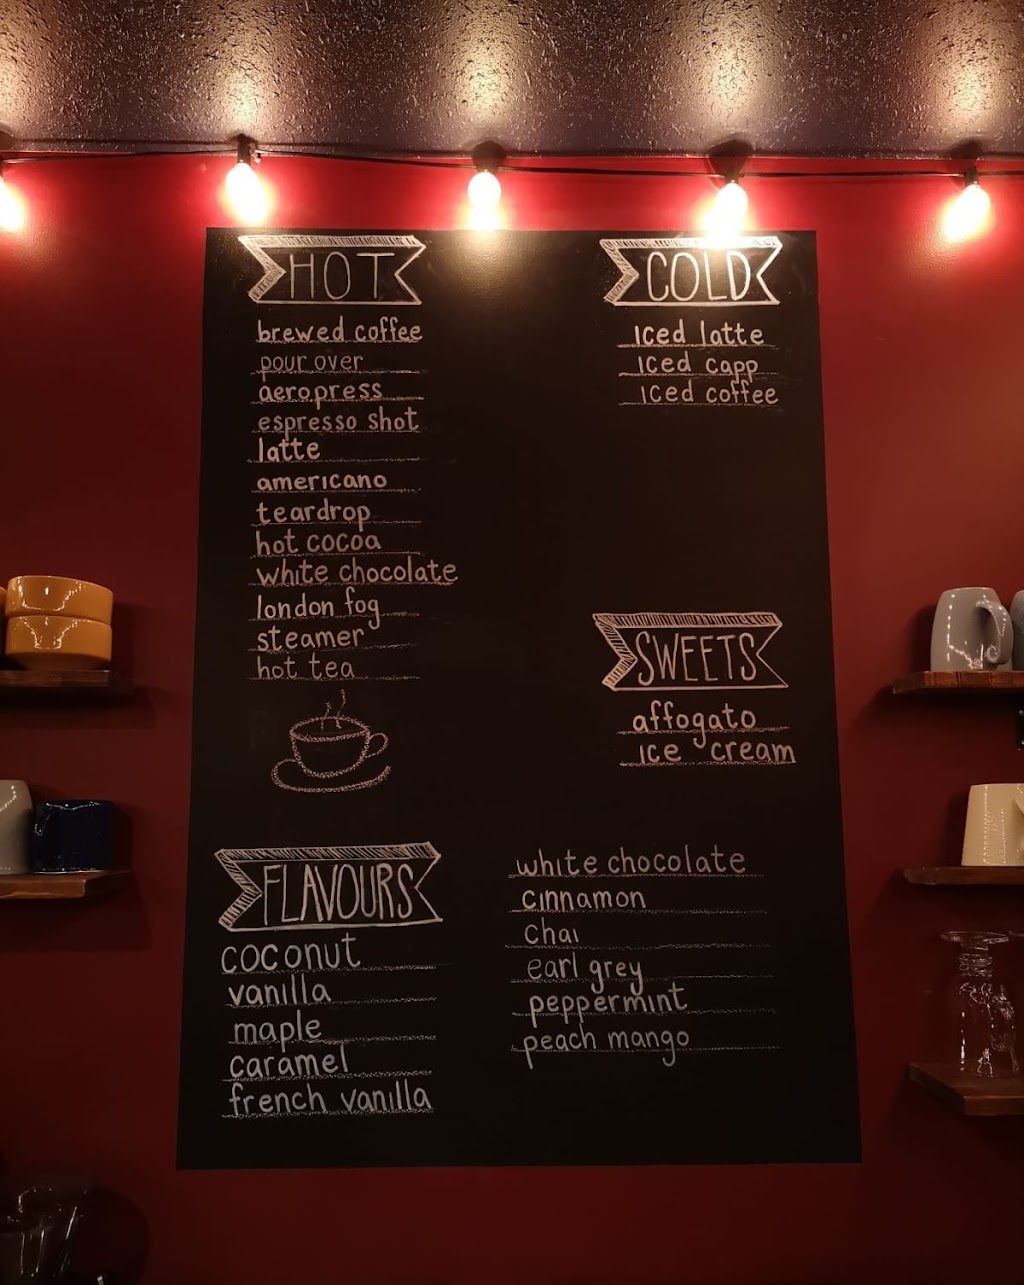 HOT
brewed coffee
pour over
aeropress
espresso shot
latte
americano
teardrop
hot cocoa
white chocolate
london fog
steamer
hot tea
COLD
Iced latte
Iced capp
Iced coffee
SWEETS
affogato
ice cream
FLAVOURS
coconut
vanilla
maple
caramel
french vanilla
white chocolate
cinnamon
chai
earl grey
peppermint
peach mango